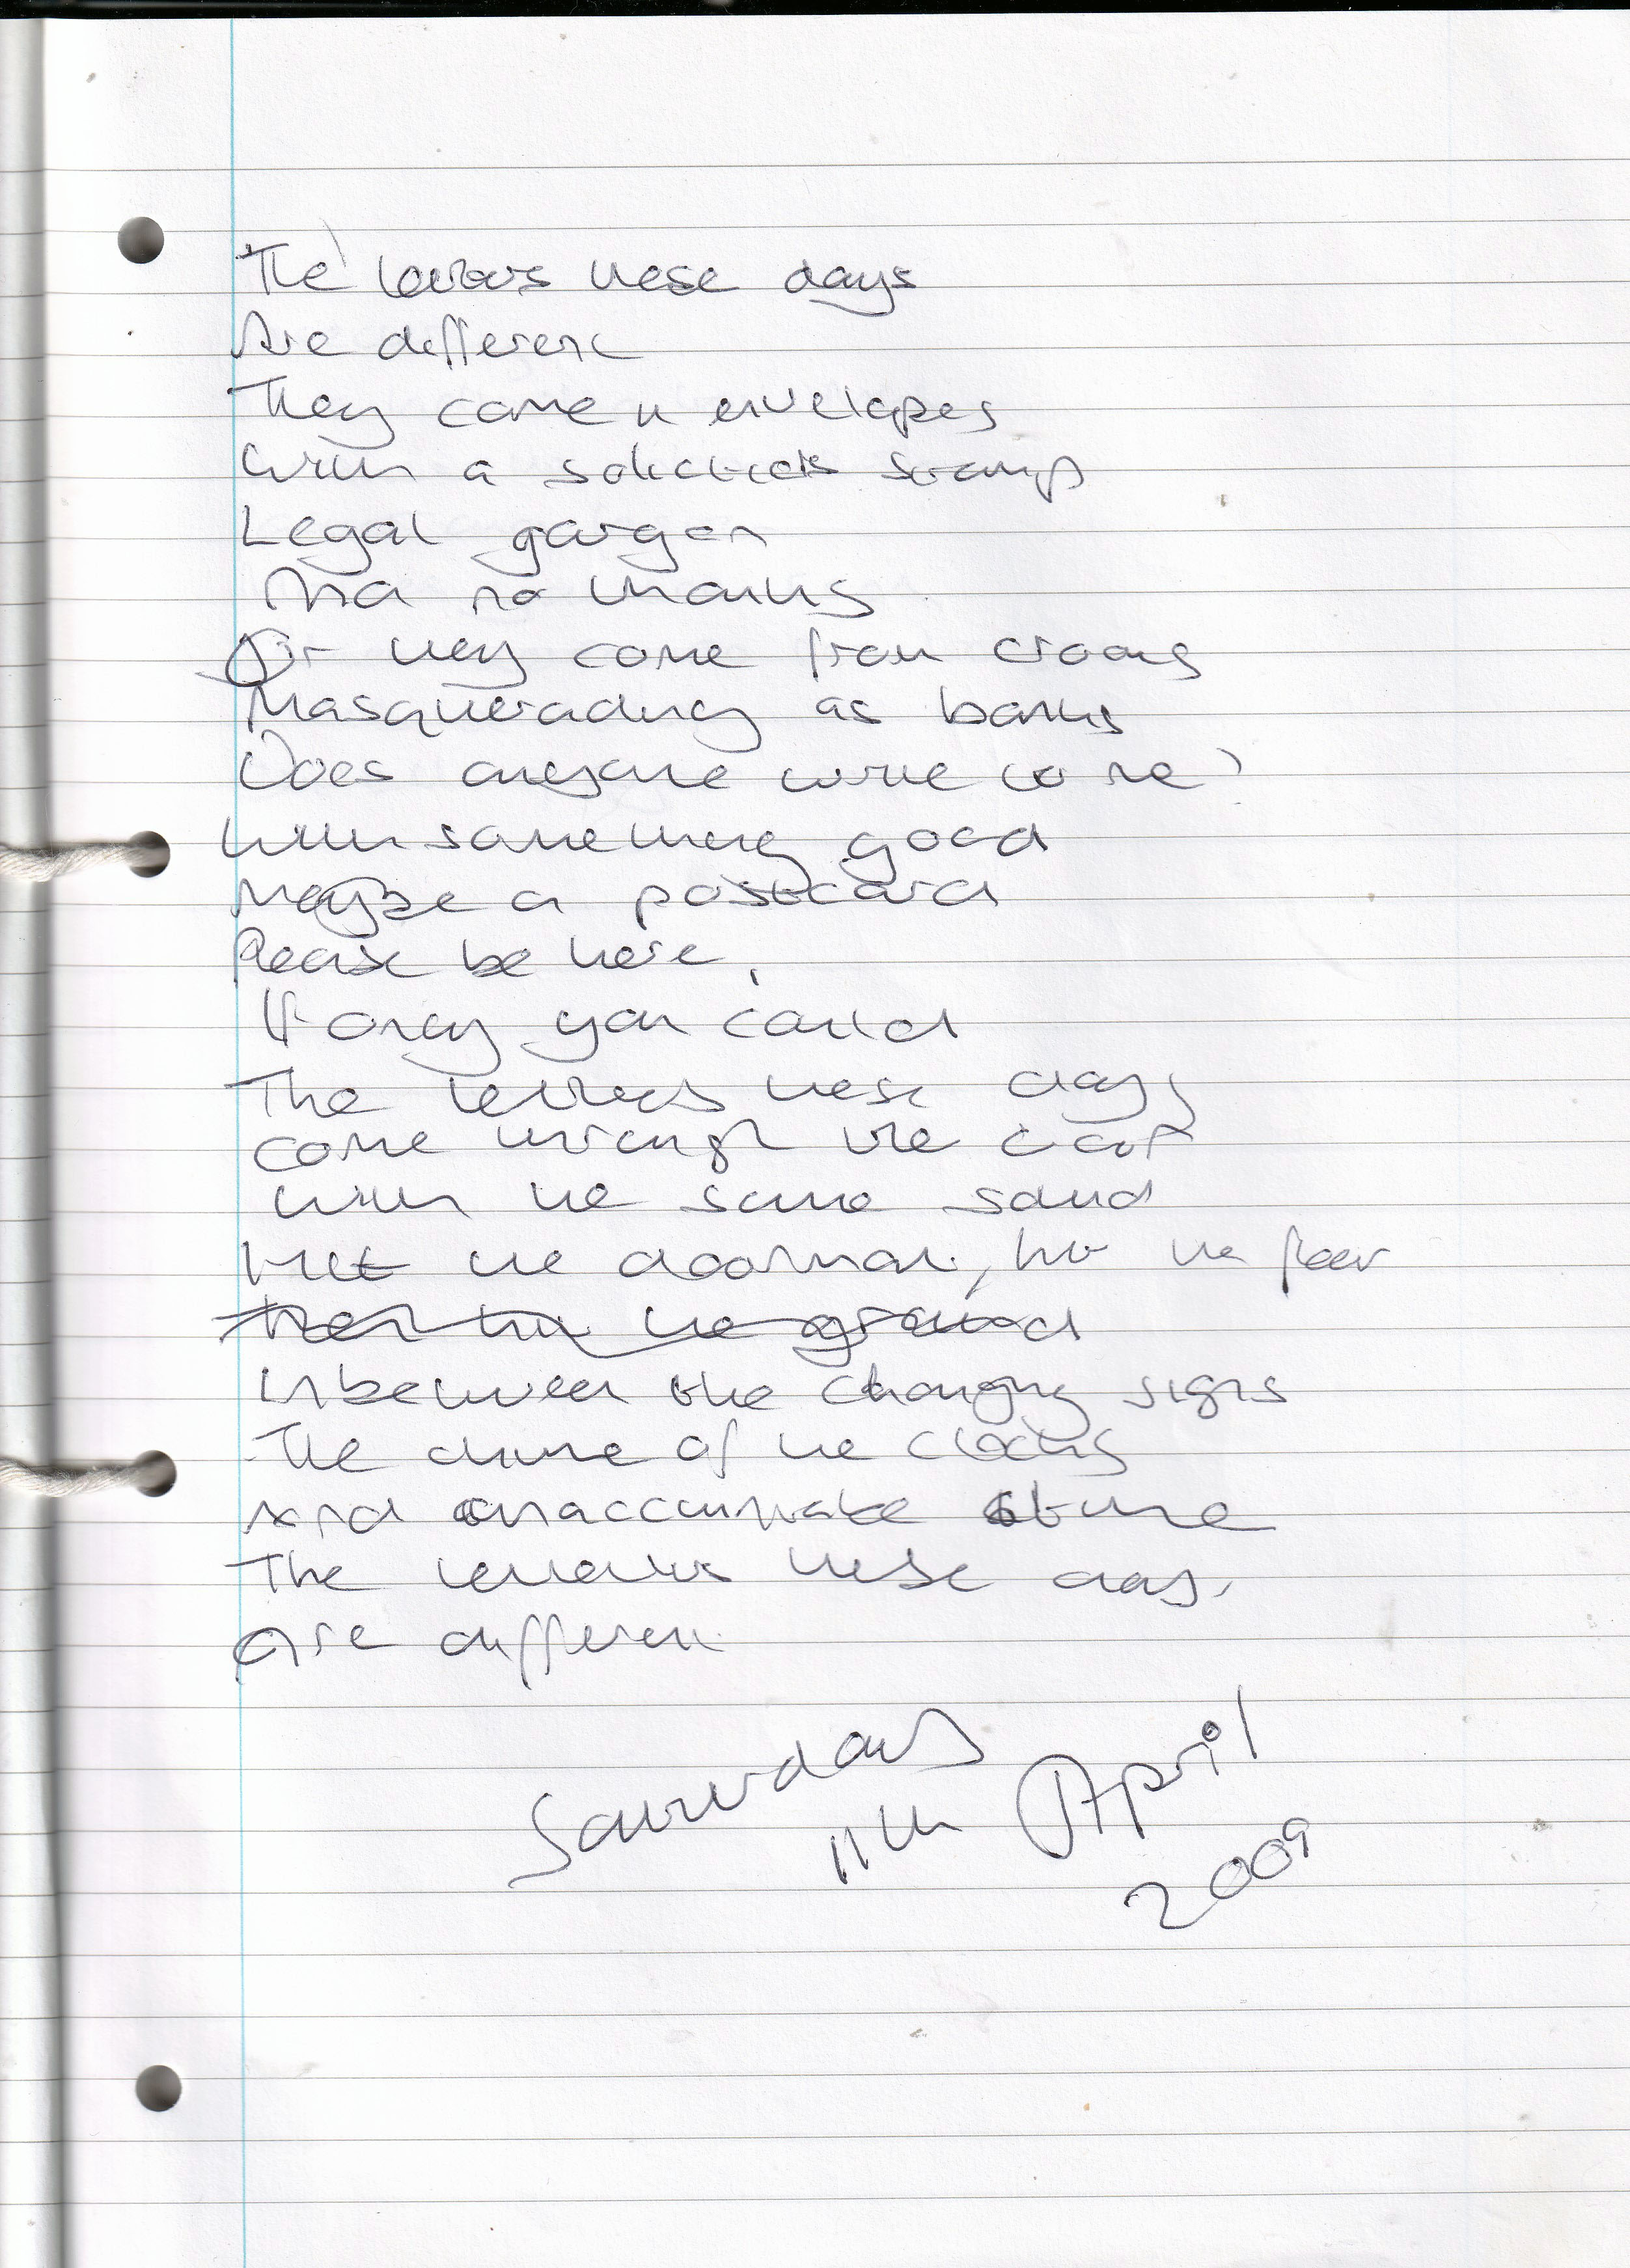 The letters these days
Are different
They come in envelopes
With a solicitors stamp
Legal gargon
And no thanks
Or they come from crooks
Masquerading as banks
Does anyone write to me?
With something good
Maybe a postcard
Please be here,
If only you could
The letters these days
Come through the door
With the same sound
Hit the doormat, hit the floor
Then hit the ground
Inbetween the changing signs
The chime of the clocks
And
The letters these days
Are different
Saturday
11th April
2009